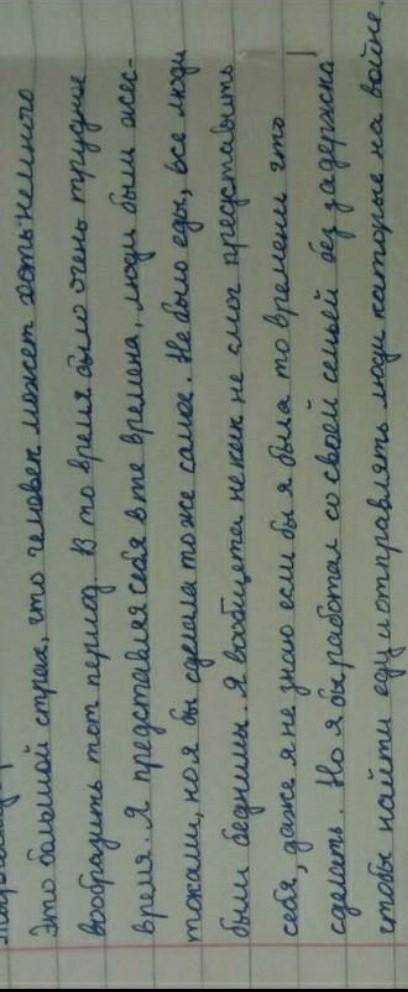 Это большой страх, что человек может хоть немного
вообразить тот период. В то время было очень трудное
время. Я представляя себя в те времена, люди были жес-
токами, но я бы сделала тоже самое. Не было еды, все люди
были бедними. Я вообщета некак не смог представить
себя, даже я не знаю если бы я была то времени что
сделать. Но я бы работал со своей семьей без задержка
чтобы найти еду и отправлять люди каторые на войне.